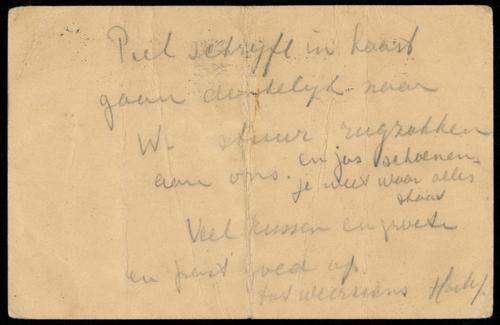 Piet schrijft in haast
gaan dadelijk naar
W. stuur rugzakken
aan ons. en jas schoenen
je weet waar alles
staat
Veel kussen en groeten
en past goed op
tot weerziens